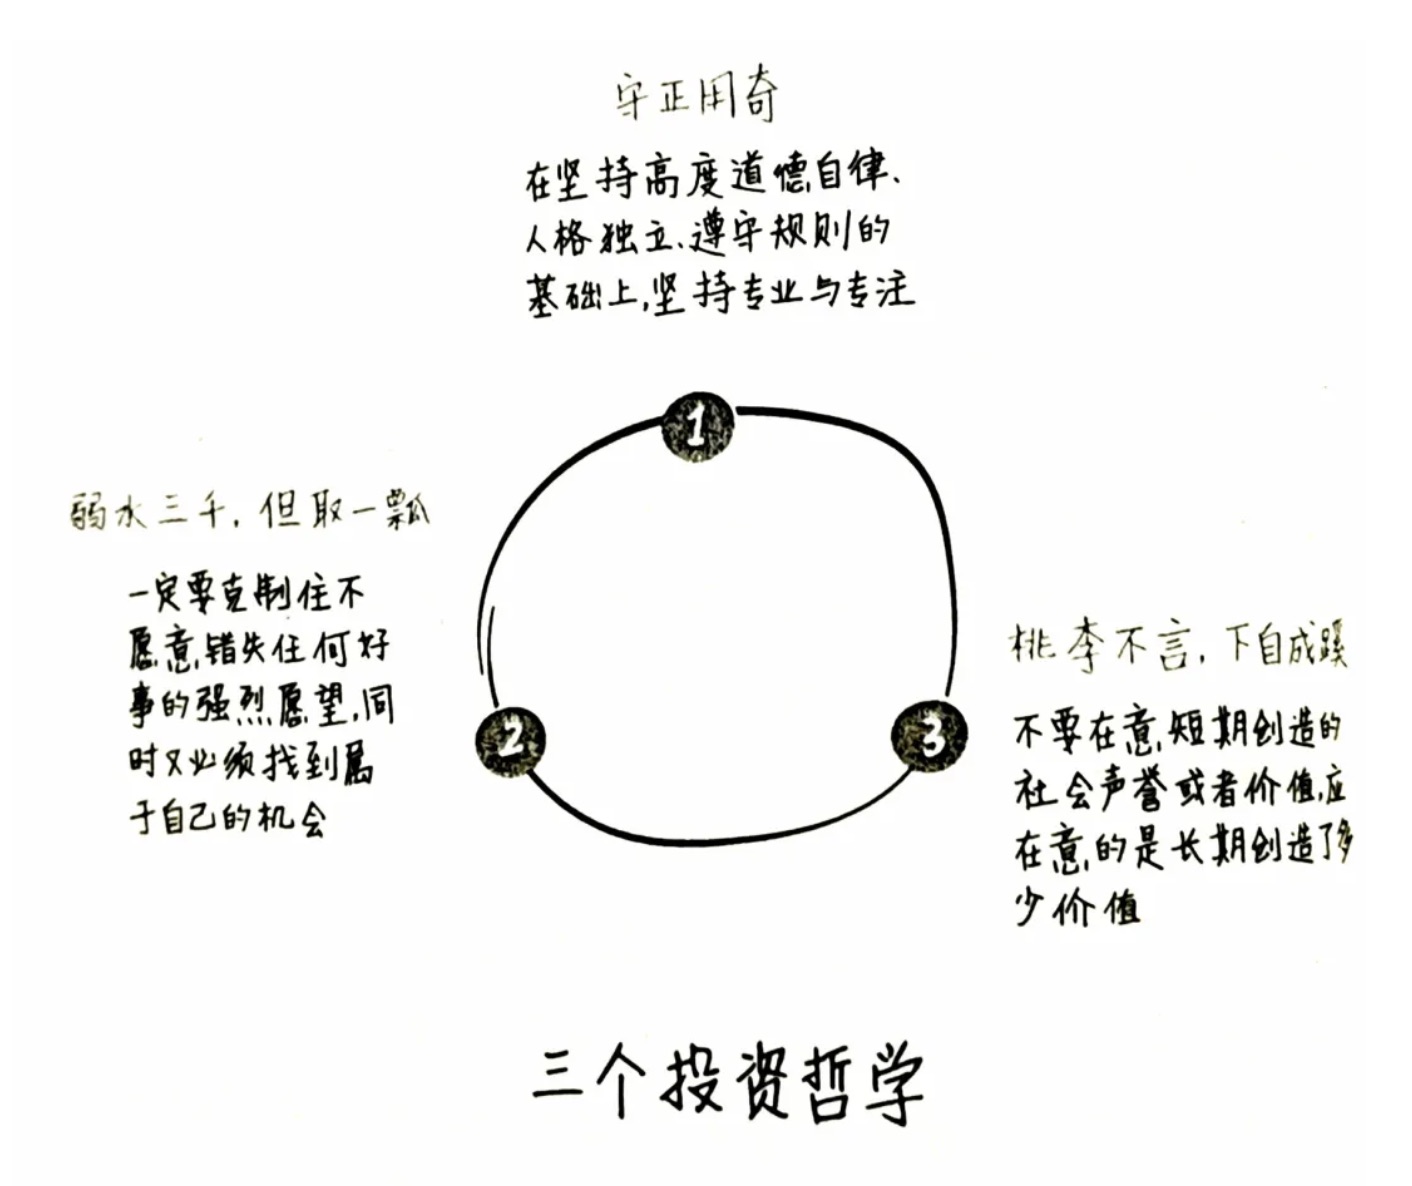 守正用奇
在坚持高度道德自律、
人格独立、遵守规则的
基础上,坚持专业与专注
1
弱水三千,但取一瓢
一定要克制住不
愿意错失任何好
事的强烈愿望,同
时又必须找到属
于自己的机会
2
3
桃李不言,下自成蹊
不要在意短期创造的
社会声誉或者价值,应
在意的是长期创造了多
少价值
三个投资哲学